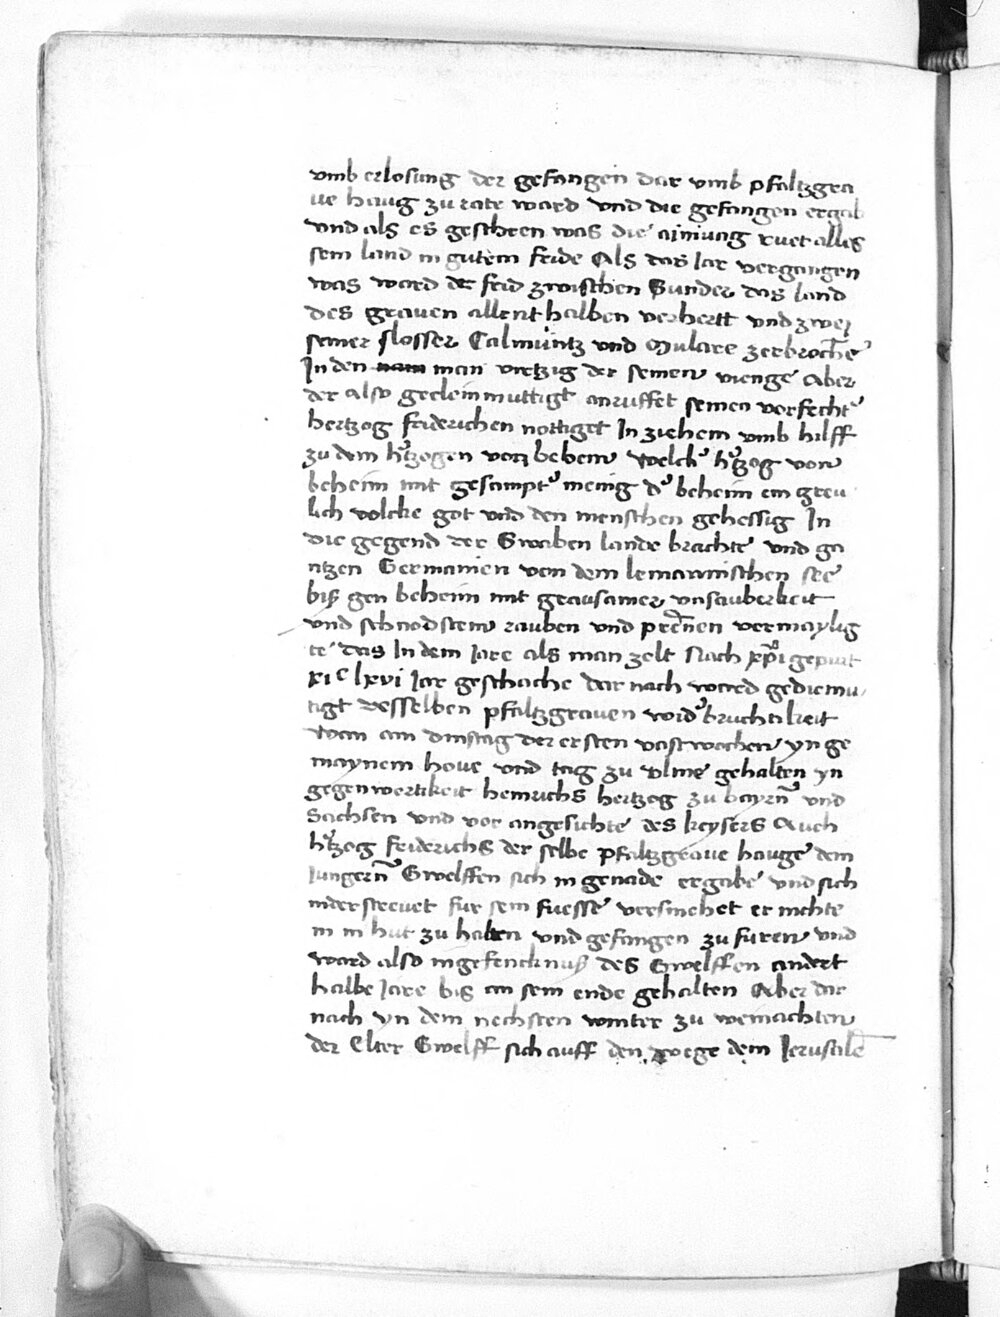 vmb erlosung der gefangen dar vmb pfaltzgra
ue haug zu rate ward vnd die gefangen ergab
vnd als es geschren was die ainung ruet alles
sein land in gutem fride Als das Jar vergangen
was ward der frid zwischen Sunder das land
des grauen allenthalben verhertt vnd zwei
seiner slosser Calmuntz vnd Mulare zerbroch̅e
In den man vietzig der seinen vienge Aber
der also gecleinmuttigt anruffet seinen verfecht'
hertzog friderichen nottiget In ziehem vmb hilff
zu dem h'tzogen von behem welch' h'tzog von
beheim mit gesampt' menig d' beheim ein greu
lich volcke got vnd den menschen gehessig In
die gegend der Swaben lande brachte vnd ga
ntzen Germanien von dem lemannischen see
biß gen beheim mit grausamer vnsauberkeit
vnd schnodstem rauben vnd pre̅nen vermaylig
te das In dem Jare als man zelt Nach xp̅i gepurt
xi c lxvi Jar geschache dar nach ward gediemu
tigt desselben pfaltzgrauen wid'bruchtikeit
wan am dinstag der ersten vastwochen yn ge
maynem houe vnd tag zu vlme gehalten yn
gegenwertikeit heinrichs hertzog zu bayrn̅ vnd
Sachsen vnd vor angesichte des keysers Auch
h'tzog friderichs der selbe pfaltzgraue hauge dem
Jungern̅ Gwelffen sich in genade ergabe vnd sich
nider strewet fur sein fuesse versmehet er nichte
in in hut zu halten vnd gefangen zu furen vnd
ward also in gefencknuß des Gwelffen andert
halbe Jare bis an sein ende gehalten Aber dar
nach yn dem nechsten winter zu weinachten
der Elter Gwelff sich auff den wege dem Jerusale̅